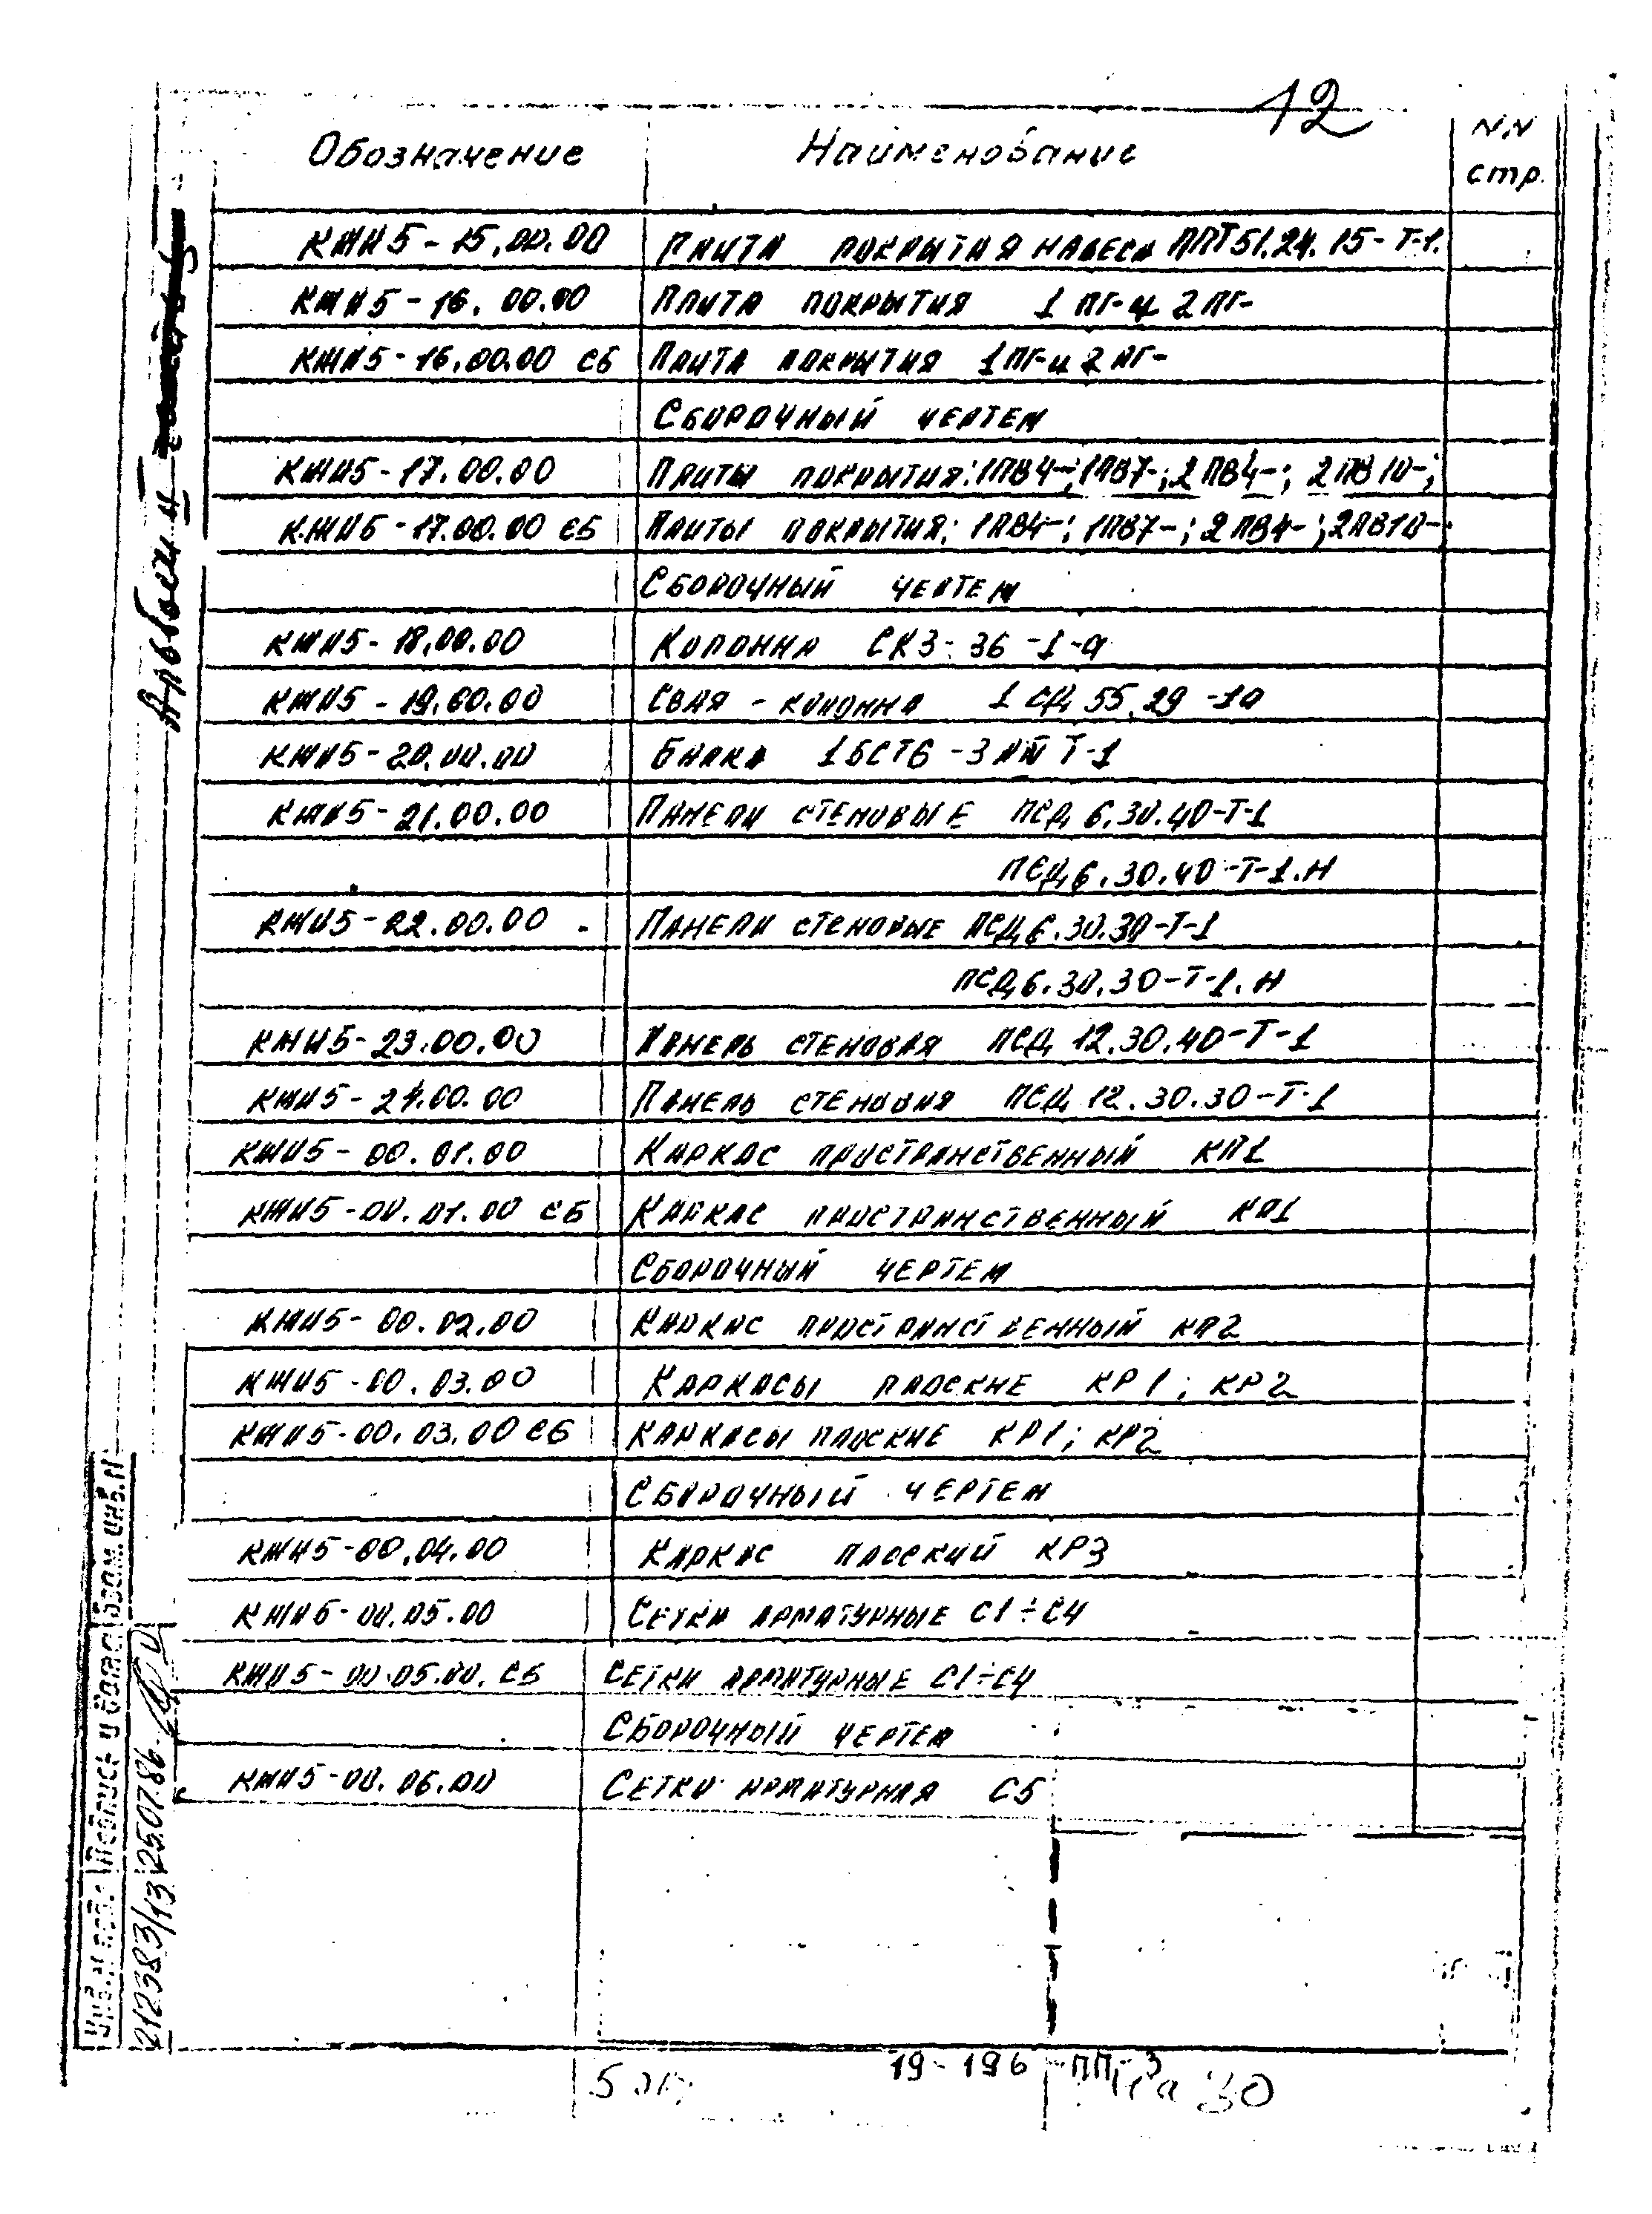 12
Обозначение Наименование NN стр.
КЖИ5-15.00.00 Плита покрытия навеса ППТ51.24.15-Т-1.
КЖИ5-16.00.00 Плита покрытия 1ПГ- и 2ПГ-
КЖИ5-16.00.00 СБ Плита покрытия 1ПГ- и 2ПГ-
Сборочный чертеж
КЖИ5-17.00.00 Плиты покрытия: 1ПВ4-; 1ПВ7-; 2ПВ4-; 2ПВ10-;
КЖИ5-17.00.00 СБ Плиты покрытия: 1ПВ4-; 1ПВ7-; 2ПВ4-; 2ПВ10-
Сборочный чертеж
КЖИ5-18.00.00 Колонна СК3-36-1-а
КЖИ5-19.00.00 Свая-колонна 1СД 55.29-1а
КЖИ5-20.00.00 Балка 1БСТ6-3 Т-1
КЖИ5-21.00.00 Панели стеновые ПСД 6.30.40-Т-1
ПСД 6.30.40-Т-1.Н
КЖИ5-22.00.00 Панели стеновые ПСД 6.30.30-Т-1
ПСД 6.30.30-Т-1.Н
КЖИ5-23.00.00 Панель стеновая ПСД 12.30.40-Т-1
КЖИ5-24.00.00 Панель стеновая ПСД 12.30.30-Т-1
КЖИ5-00.01.00 Каркас пространственный КП1
КЖИ5-00.01.00 СБ Каркас пространственный КП1
Сборочный чертеж
КЖИ5-00.02.00 Каркас пространственный КП2
КЖИ5-00.03.00 Каркасы плоские КР1; КР2
КЖИ5-00.03.00 СБ Каркасы плоские КР1; КР2
Сборочный чертеж
КЖИ5-00.04.00 Каркас плоский КР3
КЖИ5-00.05.00 Сетки арматурные С1÷С4
КЖИ5-00.05.00. СБ Сетки арматурные С1÷С4
Сборочный чертеж
КЖИ5-00.06.00 Сетка арматурная С5
19-196 -ПП-3
30
Альбом II
Инв. N подл. Подпись и дата Взам. инв. N
212383/13 25.07.86